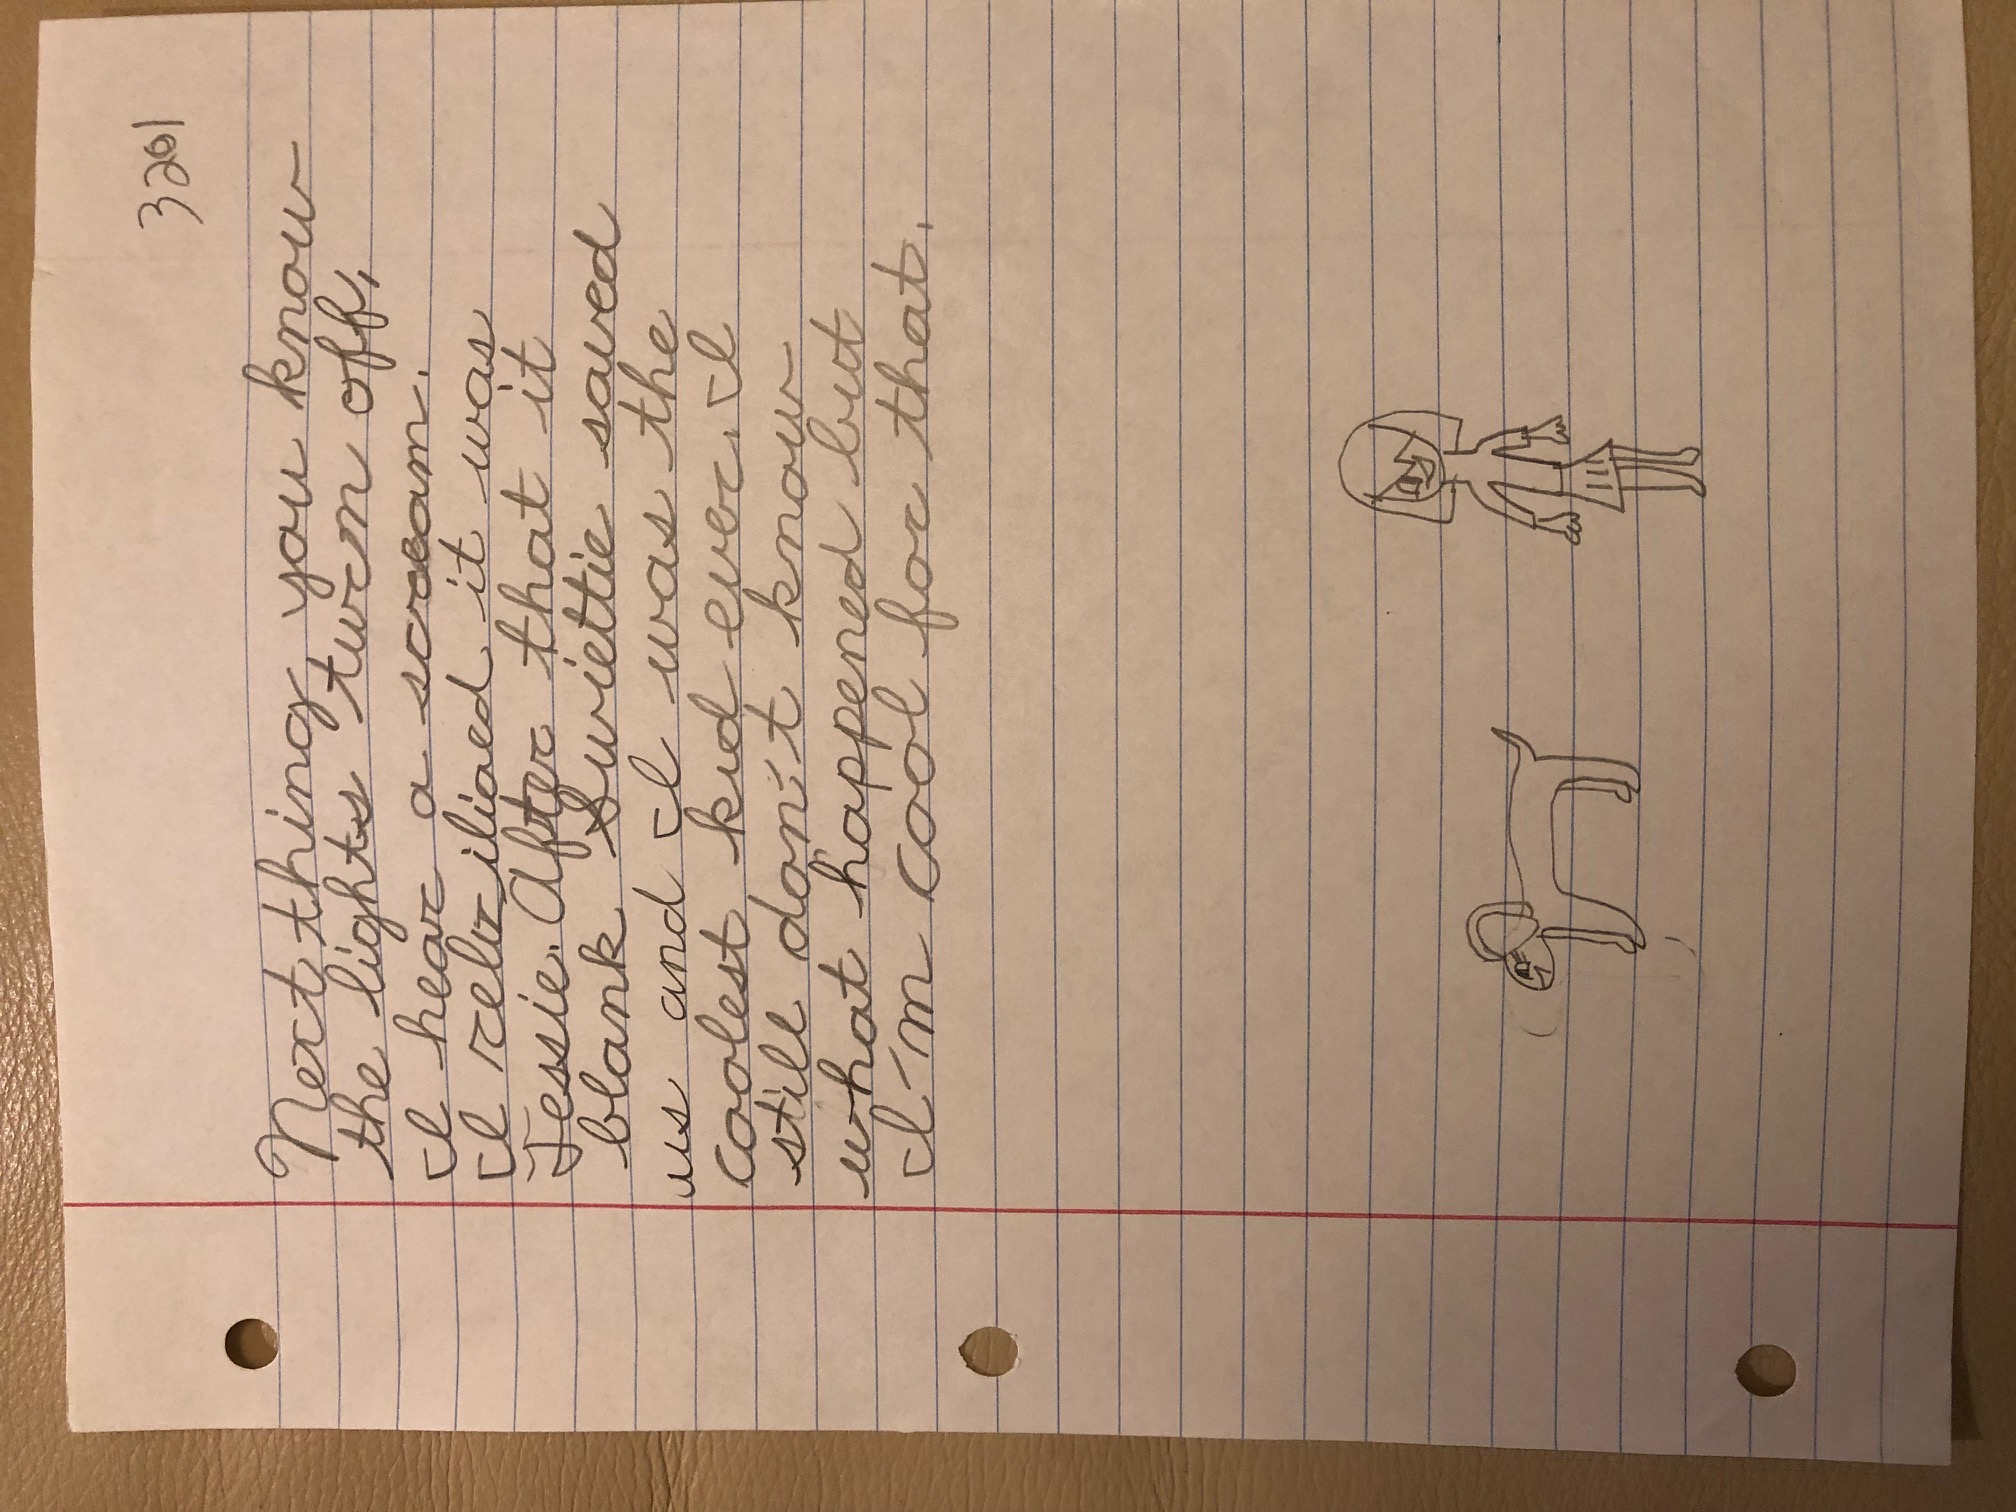 3201
Next thing, you know
the lights turn off,
I hear a scream.
I it was
Jessie. After that it
blank Swiettie saved
us and I was the
coolest kid ever. I
still don't know
what happened but
I'm cool for that.